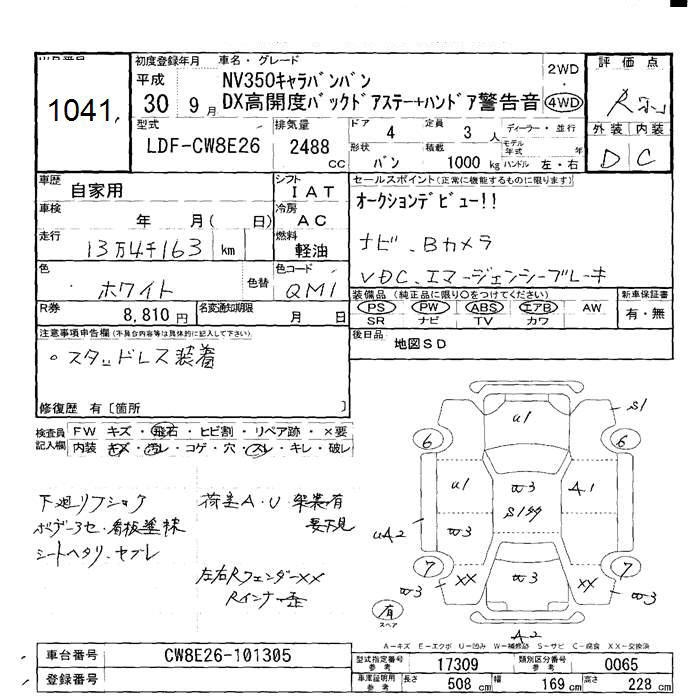 1041
初度登録年月 車名・グレード
平成
30 9月
NV350キャラバンバン
DX高開度バックドアステー+ハンドア警告音
2WD
4WD
評価点
外装 内装
D C
型式
LDF-CW8E26
排気量
2488
CC
ドア 4 定員 3 人
ディーラー・並行
形状 バン 積載 1000 kg
モデル年式 年
ハンドル 左・右
車歴
自家用
シフト
IAT
車検 年 月( 日)
冷房
AC
走行
13万4千163 km
燃料
軽油
色
ホワイト
色替
色コード
QM1
R券
8,810円
名変通知期限
月 日
セールスポイント(正常に機能するものに限ります)
オークションデビュー!!
ナビ、Bカメラ
VDC、エマージェンシーブレーキ
装備品(純正品に限り○をつけてください)
PS PW ABS エアB AW
SR ナビ TV カワ
新車保証書
有・無
後日品
地図SD
注意事項申告欄(不具合内容等は具体的に記入して下さい)
・スタッドレス装着
修復歴 有〔箇所 〕
検査員記入欄
FW キズ・飛石・ヒビ割・リペア跡・×要
内装 キズ・汚レ・コゲ・穴・スレ・キレ・破レ
下廻リフショク
シートヘタリ、ヤブレ
左右Rフェンダー××
Rインナー歪
u1
S1
6
6
u1
W3
A1
W3
uA2
7
7
XX
W3
XX
W3
W3
有
スペア
A2
A-キズ E-エクボ U-凹み W-補修跡 S-サビ C-腐食 XX-交換済
車台番号
CW8E26-101305
登録番号
型式指定番号 参考
17309
類別区分番号 参考
0065
車庫証明用 参考
長さ 508 cm
幅 169 cm
高さ 228 cm